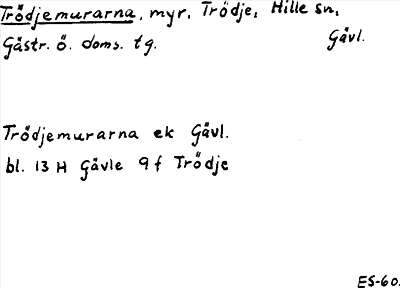 Trödjemurarna, myr, Trödje, Hille sn,
Gästr. ö. doms. tg. Gävl.
Trödjemurarna ek Gävl.
bl. 13 H Gävle 9 f Trödje
ES-60.